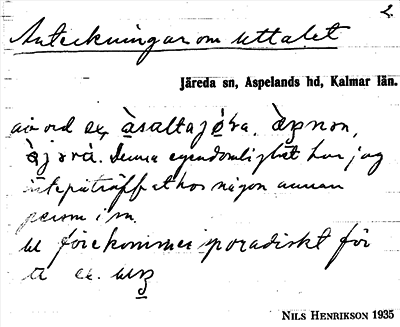 2.
Anteckningar om uttalet
Järeda sn, Aspelands hd, Kalmar län.
ord ex. àsaltajǿra,
Denna egendomlighet har jag
inte påträff et hos någon annan
person i sn.
förekommer sporadiskt för
ex.
NILS HENRIKSON 1935